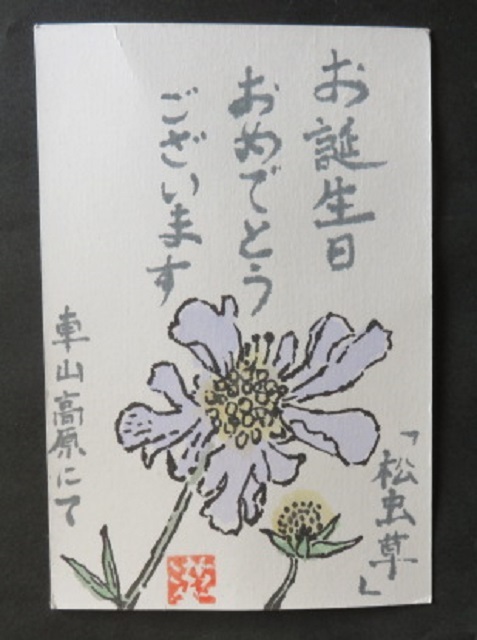 お誕生日
おめでとう
ございます
「松虫草」
車山高原にて